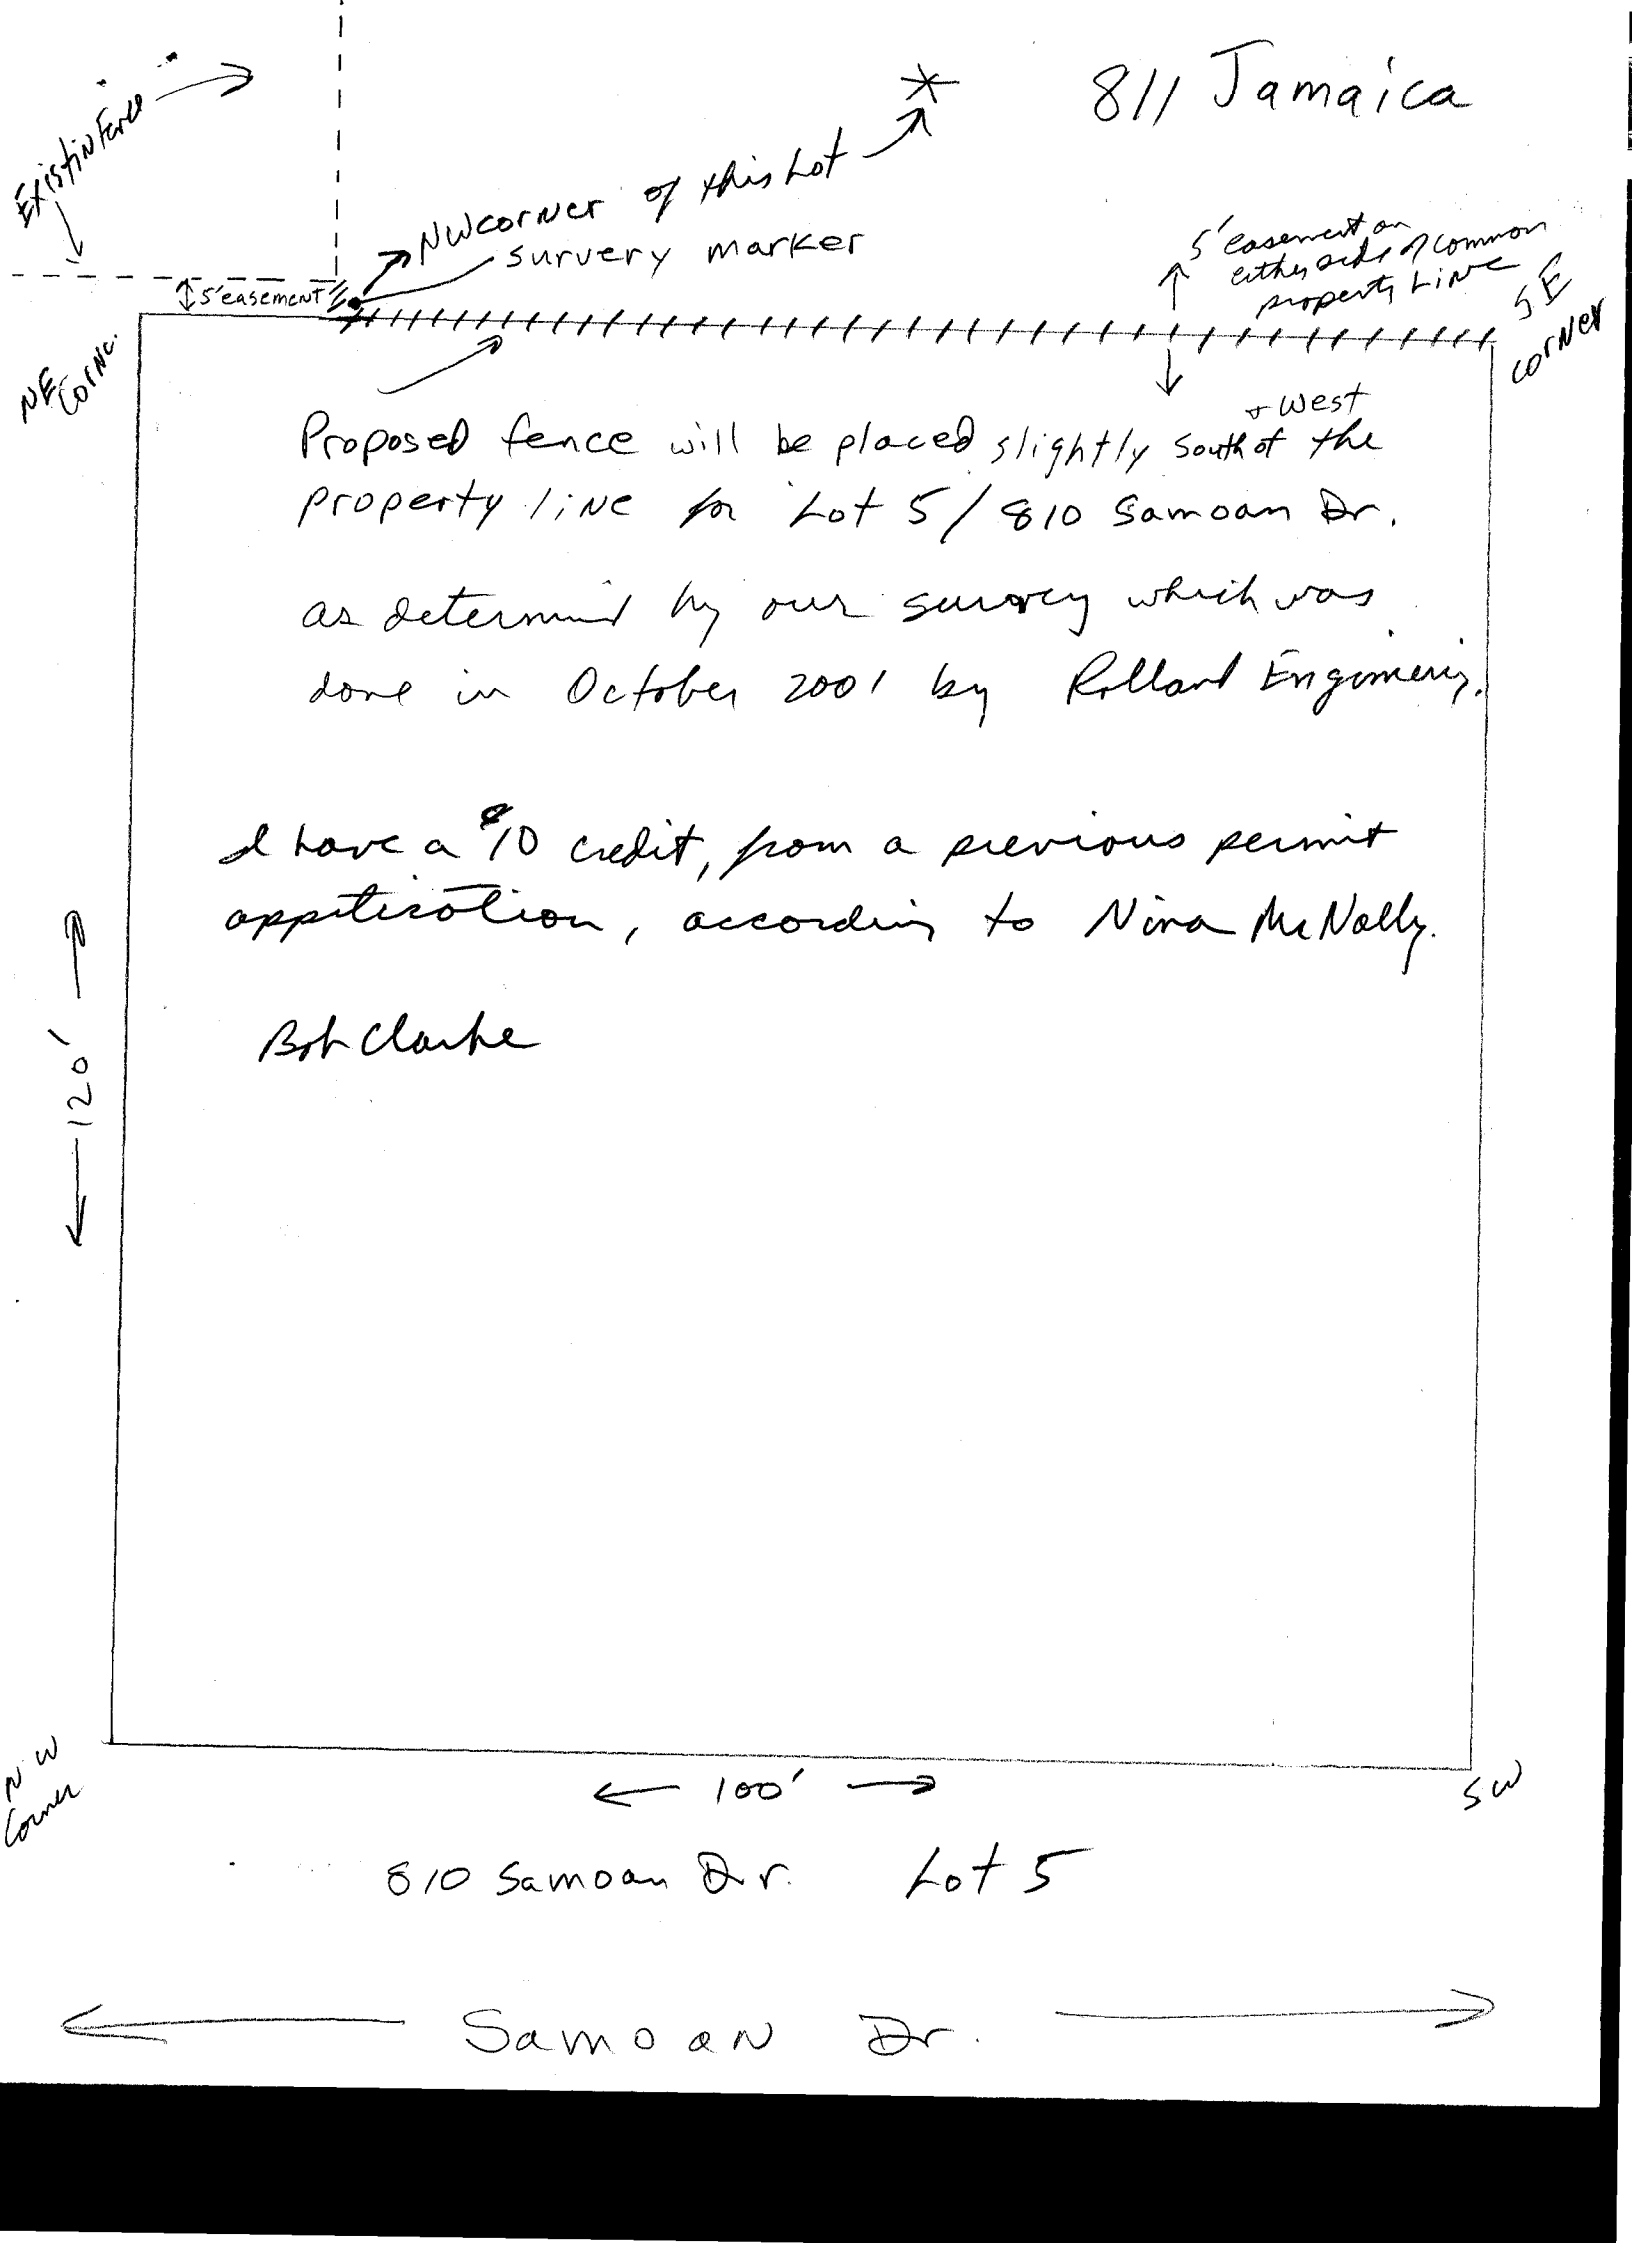 811 Jamaica
Existin Fence
NW corner of this Lot
survery marker
5' easement on
either side of common
property Line
5' easement
SE
corner
NE
Corne.
& West
Proposed fence will be placed slightly south of the
property line for Lot 5/810 Samoan Dr.
as determined by our survey which was
done in October 2001 by Rolland Engineering.
I have a $10 credit, from a previous permit
application, according to Nina McNally.
Bob Clarke
120'
NW
Corner
100'
SW
810 Samoan Dr. Lot 5
Samoan Dr.